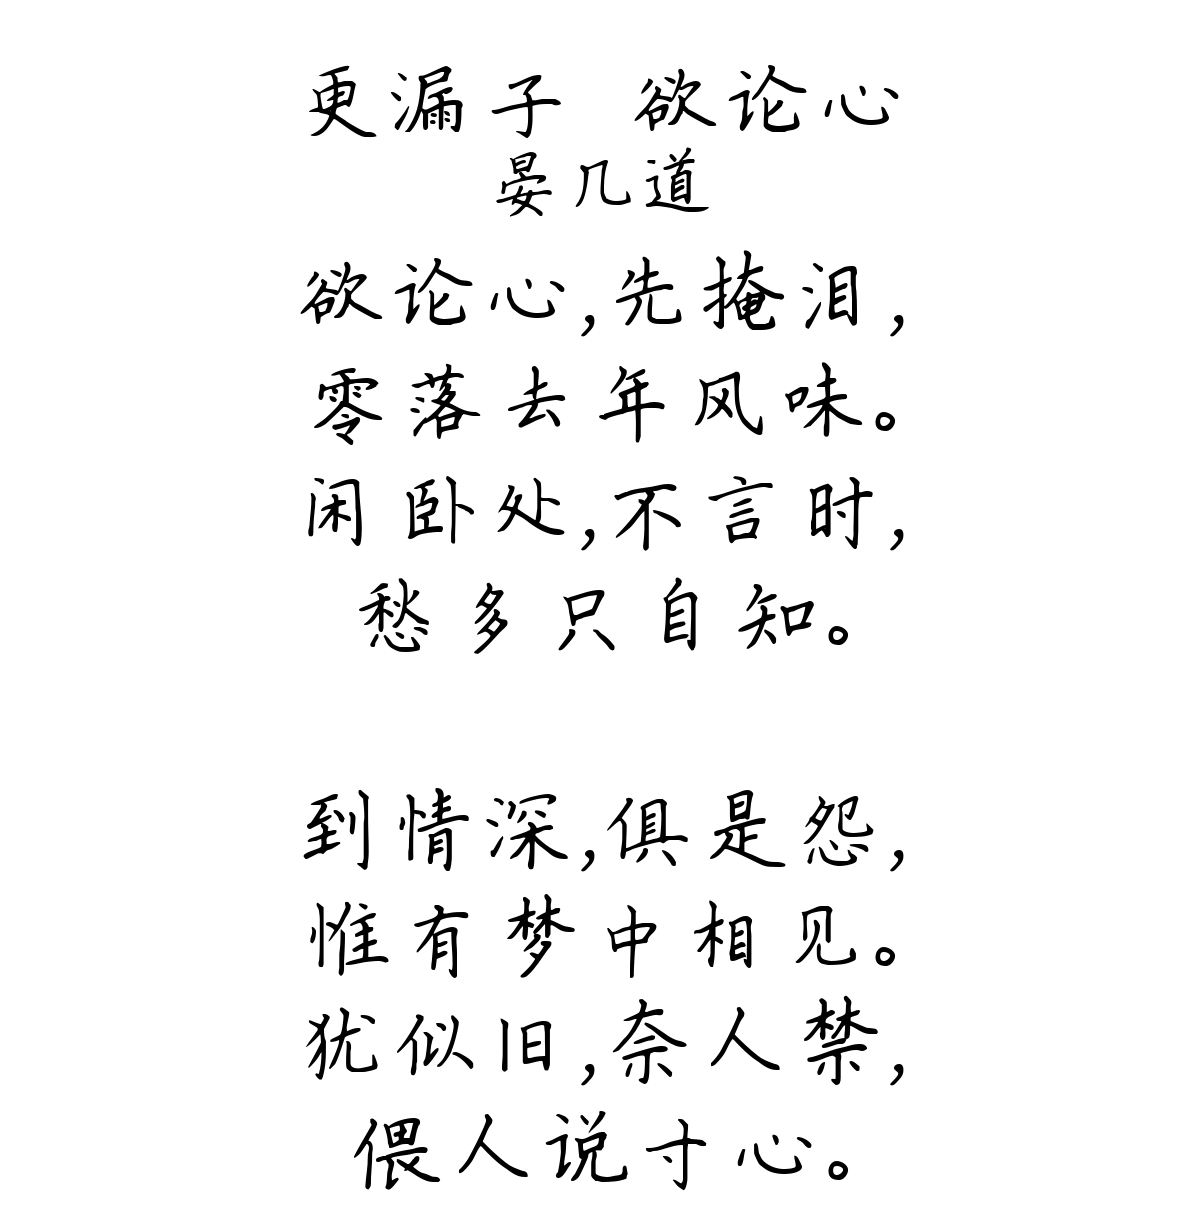 更漏子 欲论心
晏几道
欲论心,先掩泪,
零落去年风味。
闲卧处,不言时,
愁多只自知。
到情深,俱是怨,
惟有梦中相见。
犹似旧,奈人禁,
偎人说寸心。